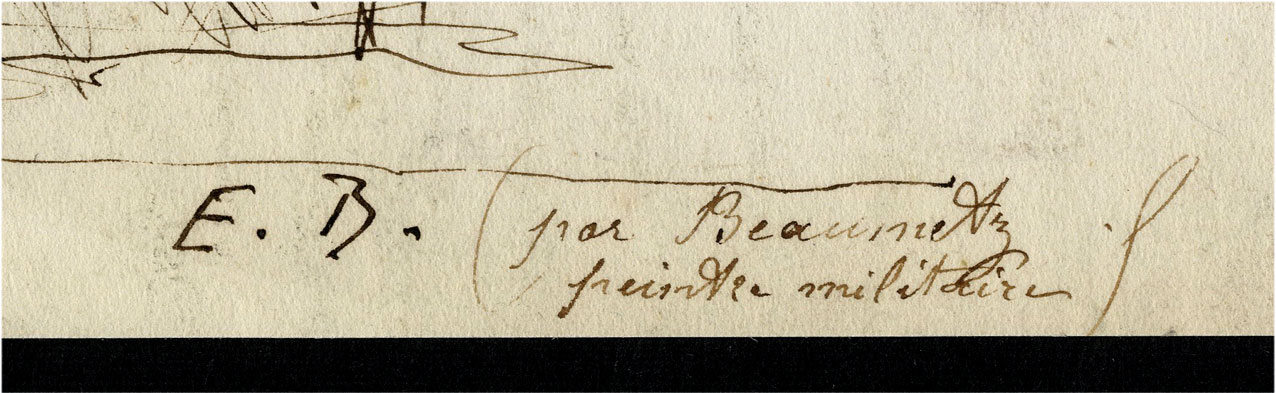 E. B. (par Beaumetz
peintre militaire)